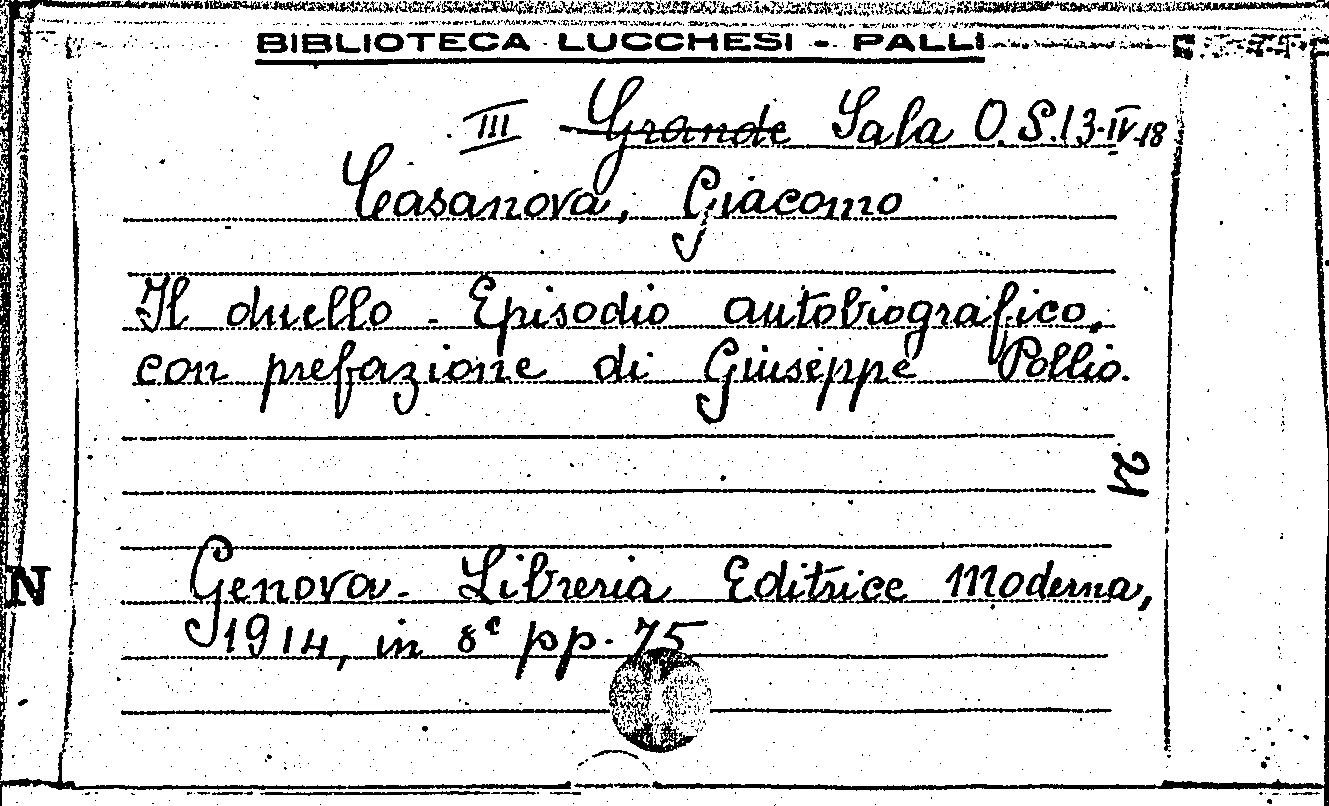 BIBLIOTECA LUCCHESI - PALLI
III Grande Sala O.S.13-IV-18
Casanova, Giacomo
Il duello - Episodio autobiografico,
con prefazione di Giuseppe Pollio.
21
N
Genova - Libreria Editrice Moderna,
1914, in 8° pp. 75